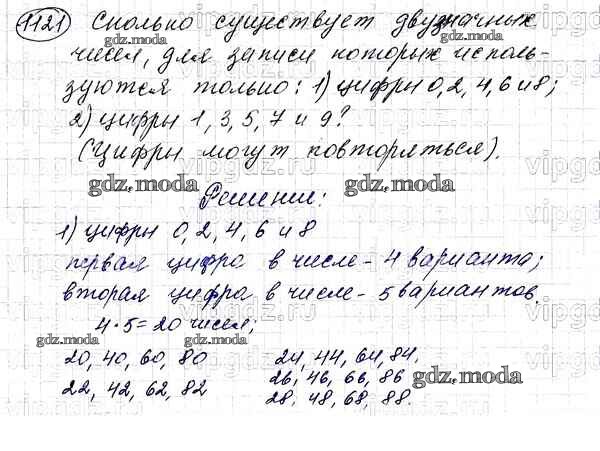 1121 Сколько существует двузначных
чисел, для записи которых исполь-
зуются только: 1) цифры 0, 2, 4, 6 и 8;
2) цифры 1, 3, 5, 7 и 9?
(Цифры могут повторяться).
Решение:
1) цифры 0, 2, 4, 6 и 8
первая цифра в числе - 4 варианта;
вторая цифра в числе - 5 вариантов.
4·5=20 чисел;
20, 40, 60, 80 24, 44, 64, 84,
22, 42, 62, 82 26, 46, 66, 86
28, 48, 68, 88.
gdz.moda
gdz.moda
gdz.moda
gdz.moda
gdz.moda
gdz.moda
gdz.moda